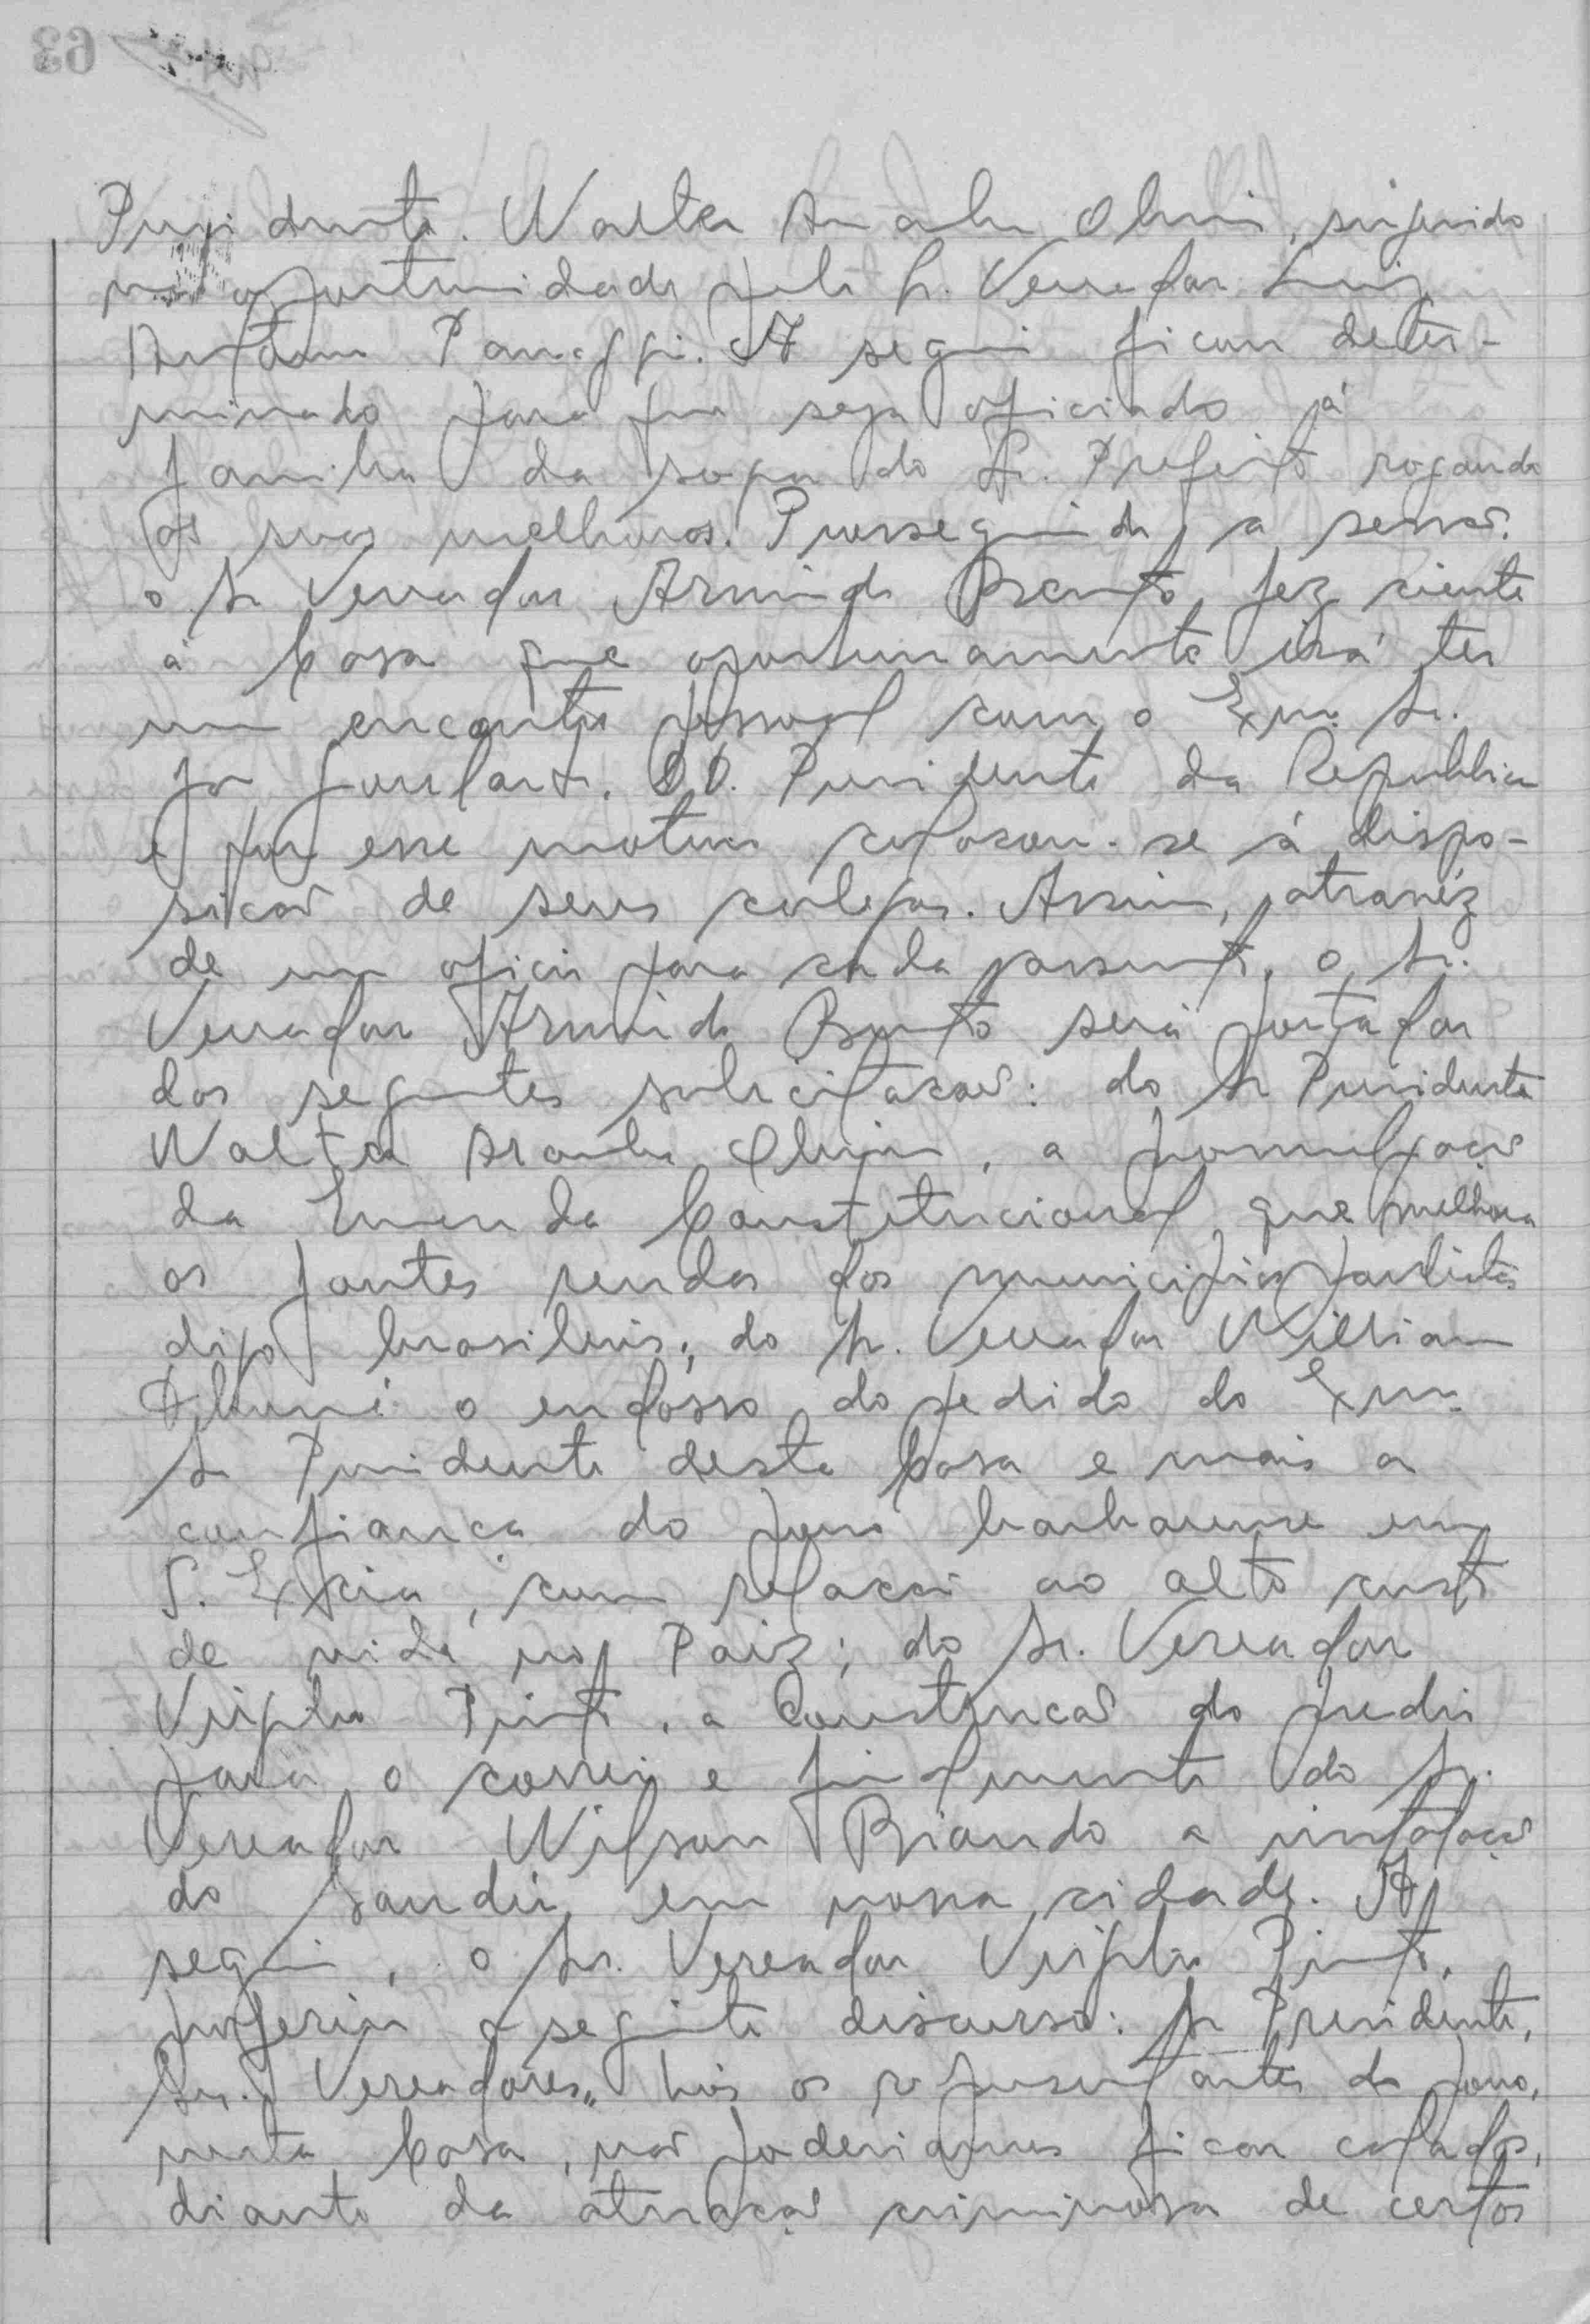 Presidente. Walter Aranha Olivi, sugerido
na oportunidade pelo Sr. Vereador Luiz
Antonio Panaggi. A seguir ficou deter-
minado para que seja oficiado á
familia da sogra do Sr. Prefeito rogando
as suas melhoras. Prosseguindo, a sessão.
o Sr Vereador Armindo Bento, fez ciente
á Casa que oportunamente irá ter
um encontro pessoal com o Exmo. Sr.
João Goulart, DD. Presidente da Republica
e por esse motivo colocou-se á dispo-
sicão de seus colegas. Assim, atravéz
de um oficio para cada assunto, o Sr.
Vereador Armindo Bento será portador
das seguintes solicitacões: do Sr Presidente
Walter Aranha Olivi, a promulgação
da Emenda Constitucional, que melhora
as fontes rendas dos municipios paulistas
digo brasileiros; do Sr. Vereador William
o endosso do pedido do Exmo.
Sr Presidente desta Casa e mais a
confiança do povo barbarense em
S. Excia, com relacão ao alto custo
de vida no Paiz; do Sr. Vereador
Virgilio Pinto, a Construcão do predio
para o correio e finalmente do Sr.
Vereador Wilson Biando a instalação
do Sandú em nossa cidade. A
seguir, o Sr. Vereador Virgilio Pinto,
proferiu o seguinte discurso: Sr Presidente,
Srs. Vereadores,, Nós os representantes do povo,
nesta Casa, não poderiamos ficar calados,
diante da atuacão criminosa de certos